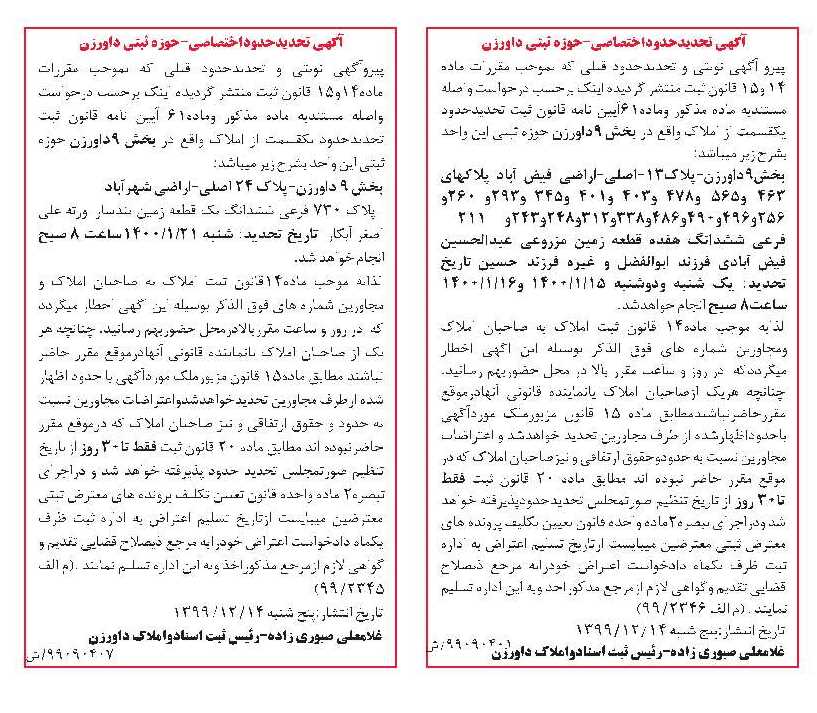 آگهی تحدیدحدوداختصاصی-حوزه ثبتی داورزن
پیرو آگهی نوبتی و تحدیدحدود قبلی که بموجب مقررات ماده
۱۴و۱۵ قانون ثبت منتشر گردیده اینک برحسب درخواست واصله
مستندبه ماده مذکور وماده۶۱آیین نامه قانون ثبت تحدیدحدود
یکقسمت از املاک واقع در بخش ۹داورزن حوزه ثبتی این واحد
بشرح زیر میباشد:
بخش۹داورزن-پلاک۱۳-اصلی-اراضی فیض آباد پلاکهای
۴۶۳ و۵۶۵ و۴۷۸ و۴۰۳ و۴۰۱ و۳۴۵ و۲۹۳و ۲۶۰و
۲۵۶و۴۹۶و۴۹۰و۴۸۶و۳۳۸و۳۱۲و۲۴۸و۲۴۳و ۲۱۱
فرعی ششدانگ هفده قطعه زمین مزروعی عبدالحسین
فیض آبادی فرزند ابوالفضل و غیره فرزند حسین تاریخ
تحدید: یک شنبه ودوشنبه ۱۴۰۰/۱/۱۵ و۱۴۰۰/۱/۱۶
ساعت۸ صبح انجام خواهدشد.
لذابه موجب ماده۱۴ قانون ثبت املاک به صاحبان املاک
ومجاورین شماره های فوق الذکر بوسیله این اگهی اخطار
میگرددکه در روز و ساعت مقرر بالا در محل حضوربهم رسانید.
چنانچه هریک ازصاحبان املاک یانماینده قانونی آنهادرموقع
مقررحاضرنباشندمطابق ماده ۱۵ قانون مزبورملک موردآگهی
باحدوداظهارشده از طرف مجاورین تحدید خواهدشد و اعتراضات
مجاورین نسبت به حدودوحقوق ارتفاقی و نیزصاحبان املاک که در
موقع مقرر حاضر نبوده اند مطابق ماده ۲۰ قانون ثبت فقط
تا۳۰ روز از تاریخ تنظیم صورتمجلس تحدیدحدودپذیرفته خواهد
شد ودراجرای تبصره۲ماده واحده قانون تعیین تکلیف پرونده های
معترض ثبتی معترضین میبایست ازتاریخ تسلیم اعتراض به اداره
ثبت ظرف یکماه دادخواست اعتراض خودرابه مرجع ذیصلاح
قضایی تقدیم وگواهی لازم ازمرجع مذکوراخذ وبه این اداره تسلیم
نمایند . (م الف ۹۹/۲۳۴۶)
تاریخ انتشار:پنج شنبه ۱۳۹۹/۱۲/۱۴
غلامعلی صبوری زاده-رئیس ثبت اسنادواملاک داورزن
۹۹۰۹۰۴۰۱/ش
آگهی تحدیدحدوداختصاصی-حوزه ثبتی داورزن
پیروآگهی نوبتی و تحدیدحدود قبلی که بموجب مقررات
ماده۱۴و۱۵ قانون ثبت منتشر گردیده اینک برحسب درخواست
واصله مستندبه ماده مذکور وماده۶۱ آیین نامه قانون ثبت
تحدیدحدود یکقسمت از املاک واقع در بخش ۹داورزن حوزه
ثبتی این واحد بشرح زیر میباشد:
بخش ۹ داورزن-پلاک ۲۴ اصلی-اراضی شهرآباد
پلاک ۷۳۰ فرعی ششدانگ یک قطعه زمین بندسار ورثه علی
اصغر آبکار تاریخ تحدید: شنبه ۱۴۰۰/۱/۲۱ساعت ۸ صبح
انجام خواهد شد.
لذابه موجب ماده۱۴قانون ثبت املاک به صاحبان املاک و
مجاورین شماره های فوق الذکر بوسیله این آگهی اخطار میگردد
که در روز و ساعت مقرربالادرمحل حضوربهم رسانید. چنانچه هر
یک از صاحبان املاک یانماینده قانونی آنهادرموقع مقرر حاضر
نباشند مطابق ماده۱۵ قانون مزبورملک موردآگهی با حدود اظهار
شده ازطرف مجاورین تحدیدخواهدشدواعتراضات مجاورین نسبت
به حدود و حقوق ارتفاقی و نیز صاحبان املاک که درموقع مقرر
حاضرنبوده اند مطابق ماده ۲۰ قانون ثبت فقط تا۳۰ روز از تاریخ
تنظیم صورتمجلس تحدید حدود پذیرفته خواهد شد و دراجرای
تبصره۲ ماده واحده قانون تعیین تکلیف پرونده های معترض ثبتی
معترضین میبایست ازتاریخ تسلیم اعتراض به اداره ثبت ظرف
یکماه دادخواست اعتراض خودرابه مرجع ذیصلاح قضایی تقدیم و
گواهی لازم ازمرجع مذکوراخذ وبه این اداره تسلیم نمایند .(م الف
۹۹/۲۳۴۵)
تاریخ انتشار:پنج شنبه ۱۳۹۹/۱۲/۱۴
غلامعلی صبوری زاده-رئیس ثبت اسنادواملاک داورزن
۹۹۰۹۰۴۰۷/ش